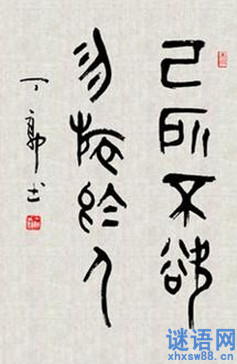 己所不欲
勿施於人
丁郭土
谜语网
xhxsw88.cn